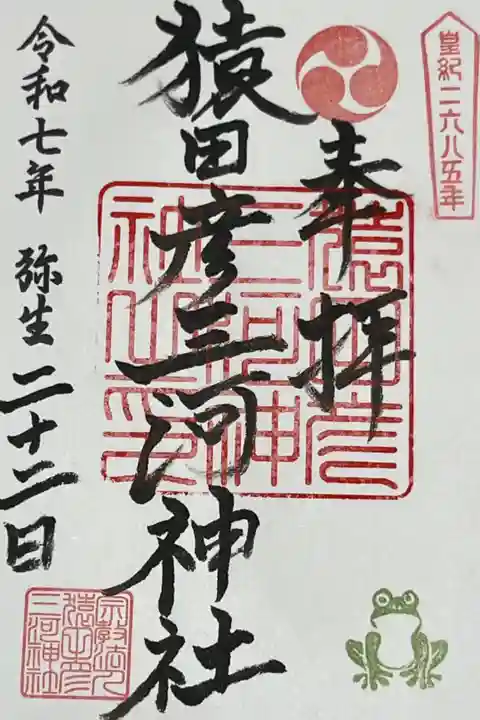 皇紀二六八五年
奉拝
猿田彦三河神社
猿田彦
三河神
社之印
令和七年 弥生二十二日
宗教法人
猿田彦
三河神社